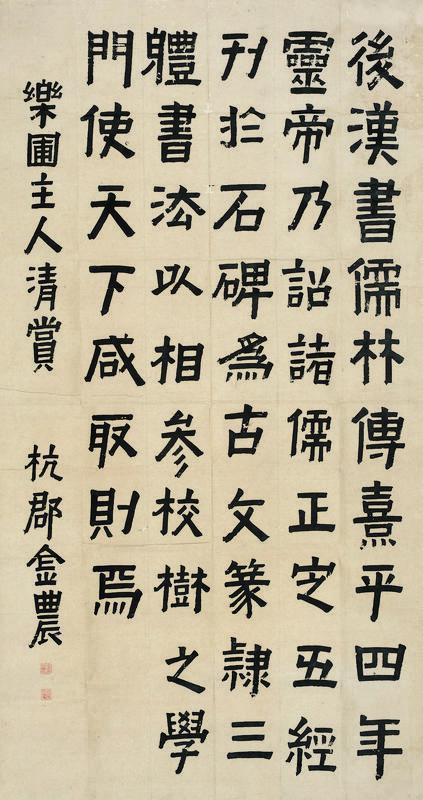 後漢書儒林傳熹平四年
靈帝乃詔諸儒正定五經
刊於石碑爲古文篆隸三
軆書法以相參校樹之學
門使天下咸取則焉
樂圃主人清賞
杭郡金農